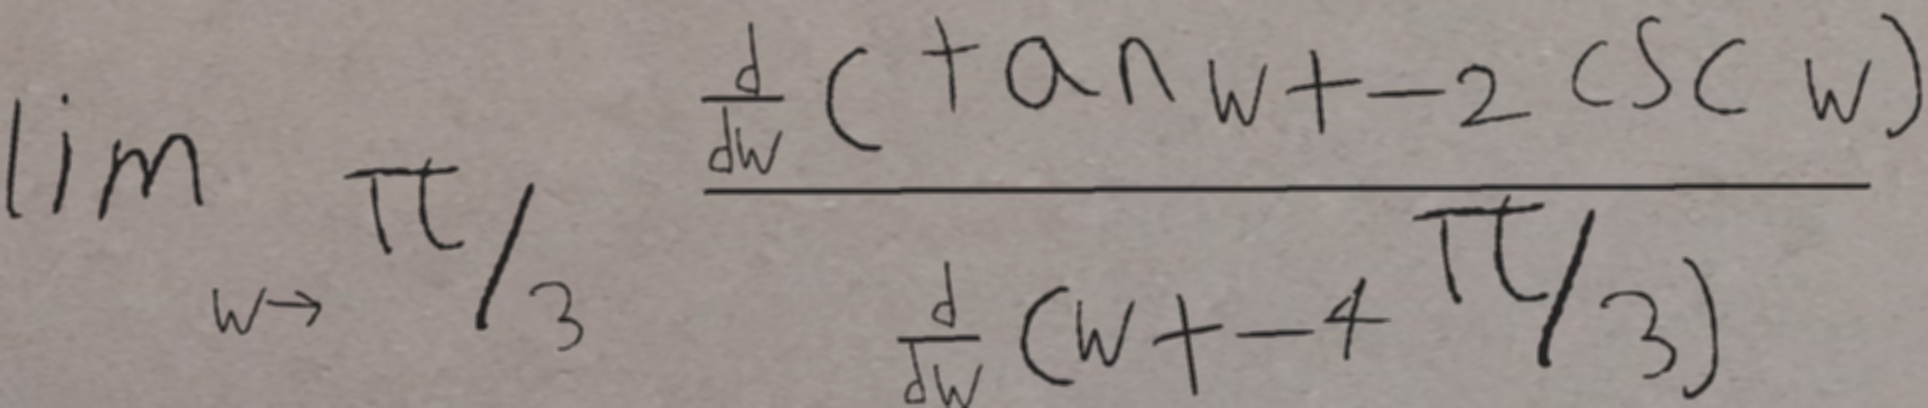 \lim_{w \to \pi/3} \frac{\frac{d}{dw}(\tan w + -2 \csc w)}{\frac{d}{dw}(w + -4 \pi/3)}